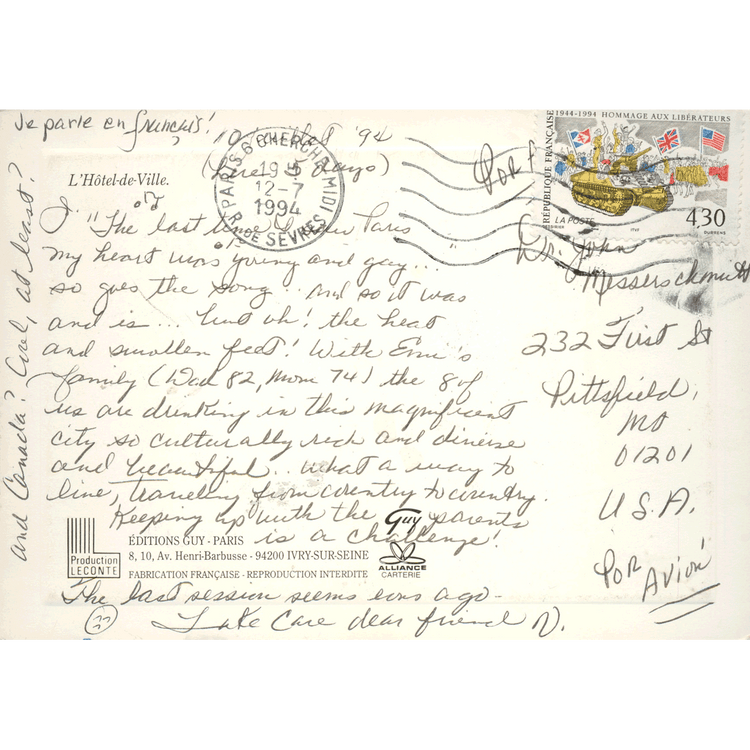 Je parle en français!
'94
(
days)
L'Hôtel-de-Ville.
PARIS 6 CHERCHE MIDI
19 H
12-7
1994
R. DE SÈVRES
1944-1994 HOMMAGE AUX LIBÉRATEURS
RÉPUBLIQUE FRANÇAISE
LA POSTE
4,30
"The last time I saw Paris
my heart was young and gay...
so goes the song... and so it was
and is... but oh! the heat
and swollen feet! With Erni's
family (Dad 82, Mom 74) the 8 of
us are drinking in this magnificent
city so culturally rich and diverse
and beautiful... what a way to
live, travelling from country to country.
Keeping up with the parents
is a challenge!
The last session seems eons ago -
Take care dear friend N.
and Canada? Cool, at least?
Dr. John
Messerschmitt
232 First St
Pittsfield,
MA
01201
U.S.A.
Por
Avion
Production
LECONTE
ÉDITIONS GUY - PARIS
8, 10, Av. Henri-Barbusse - 94200 IVRY-SUR-SEINE
FABRICATION FRANÇAISE - REPRODUCTION INTERDITE
Guy
ALLIANCE
CARTERIE